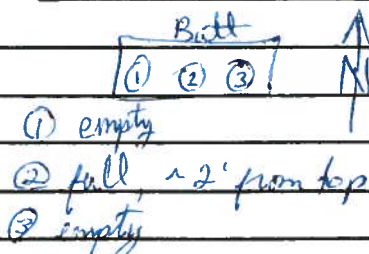 Batt
① ② ③ N
① empty
② full, ~2' from top
③ empty